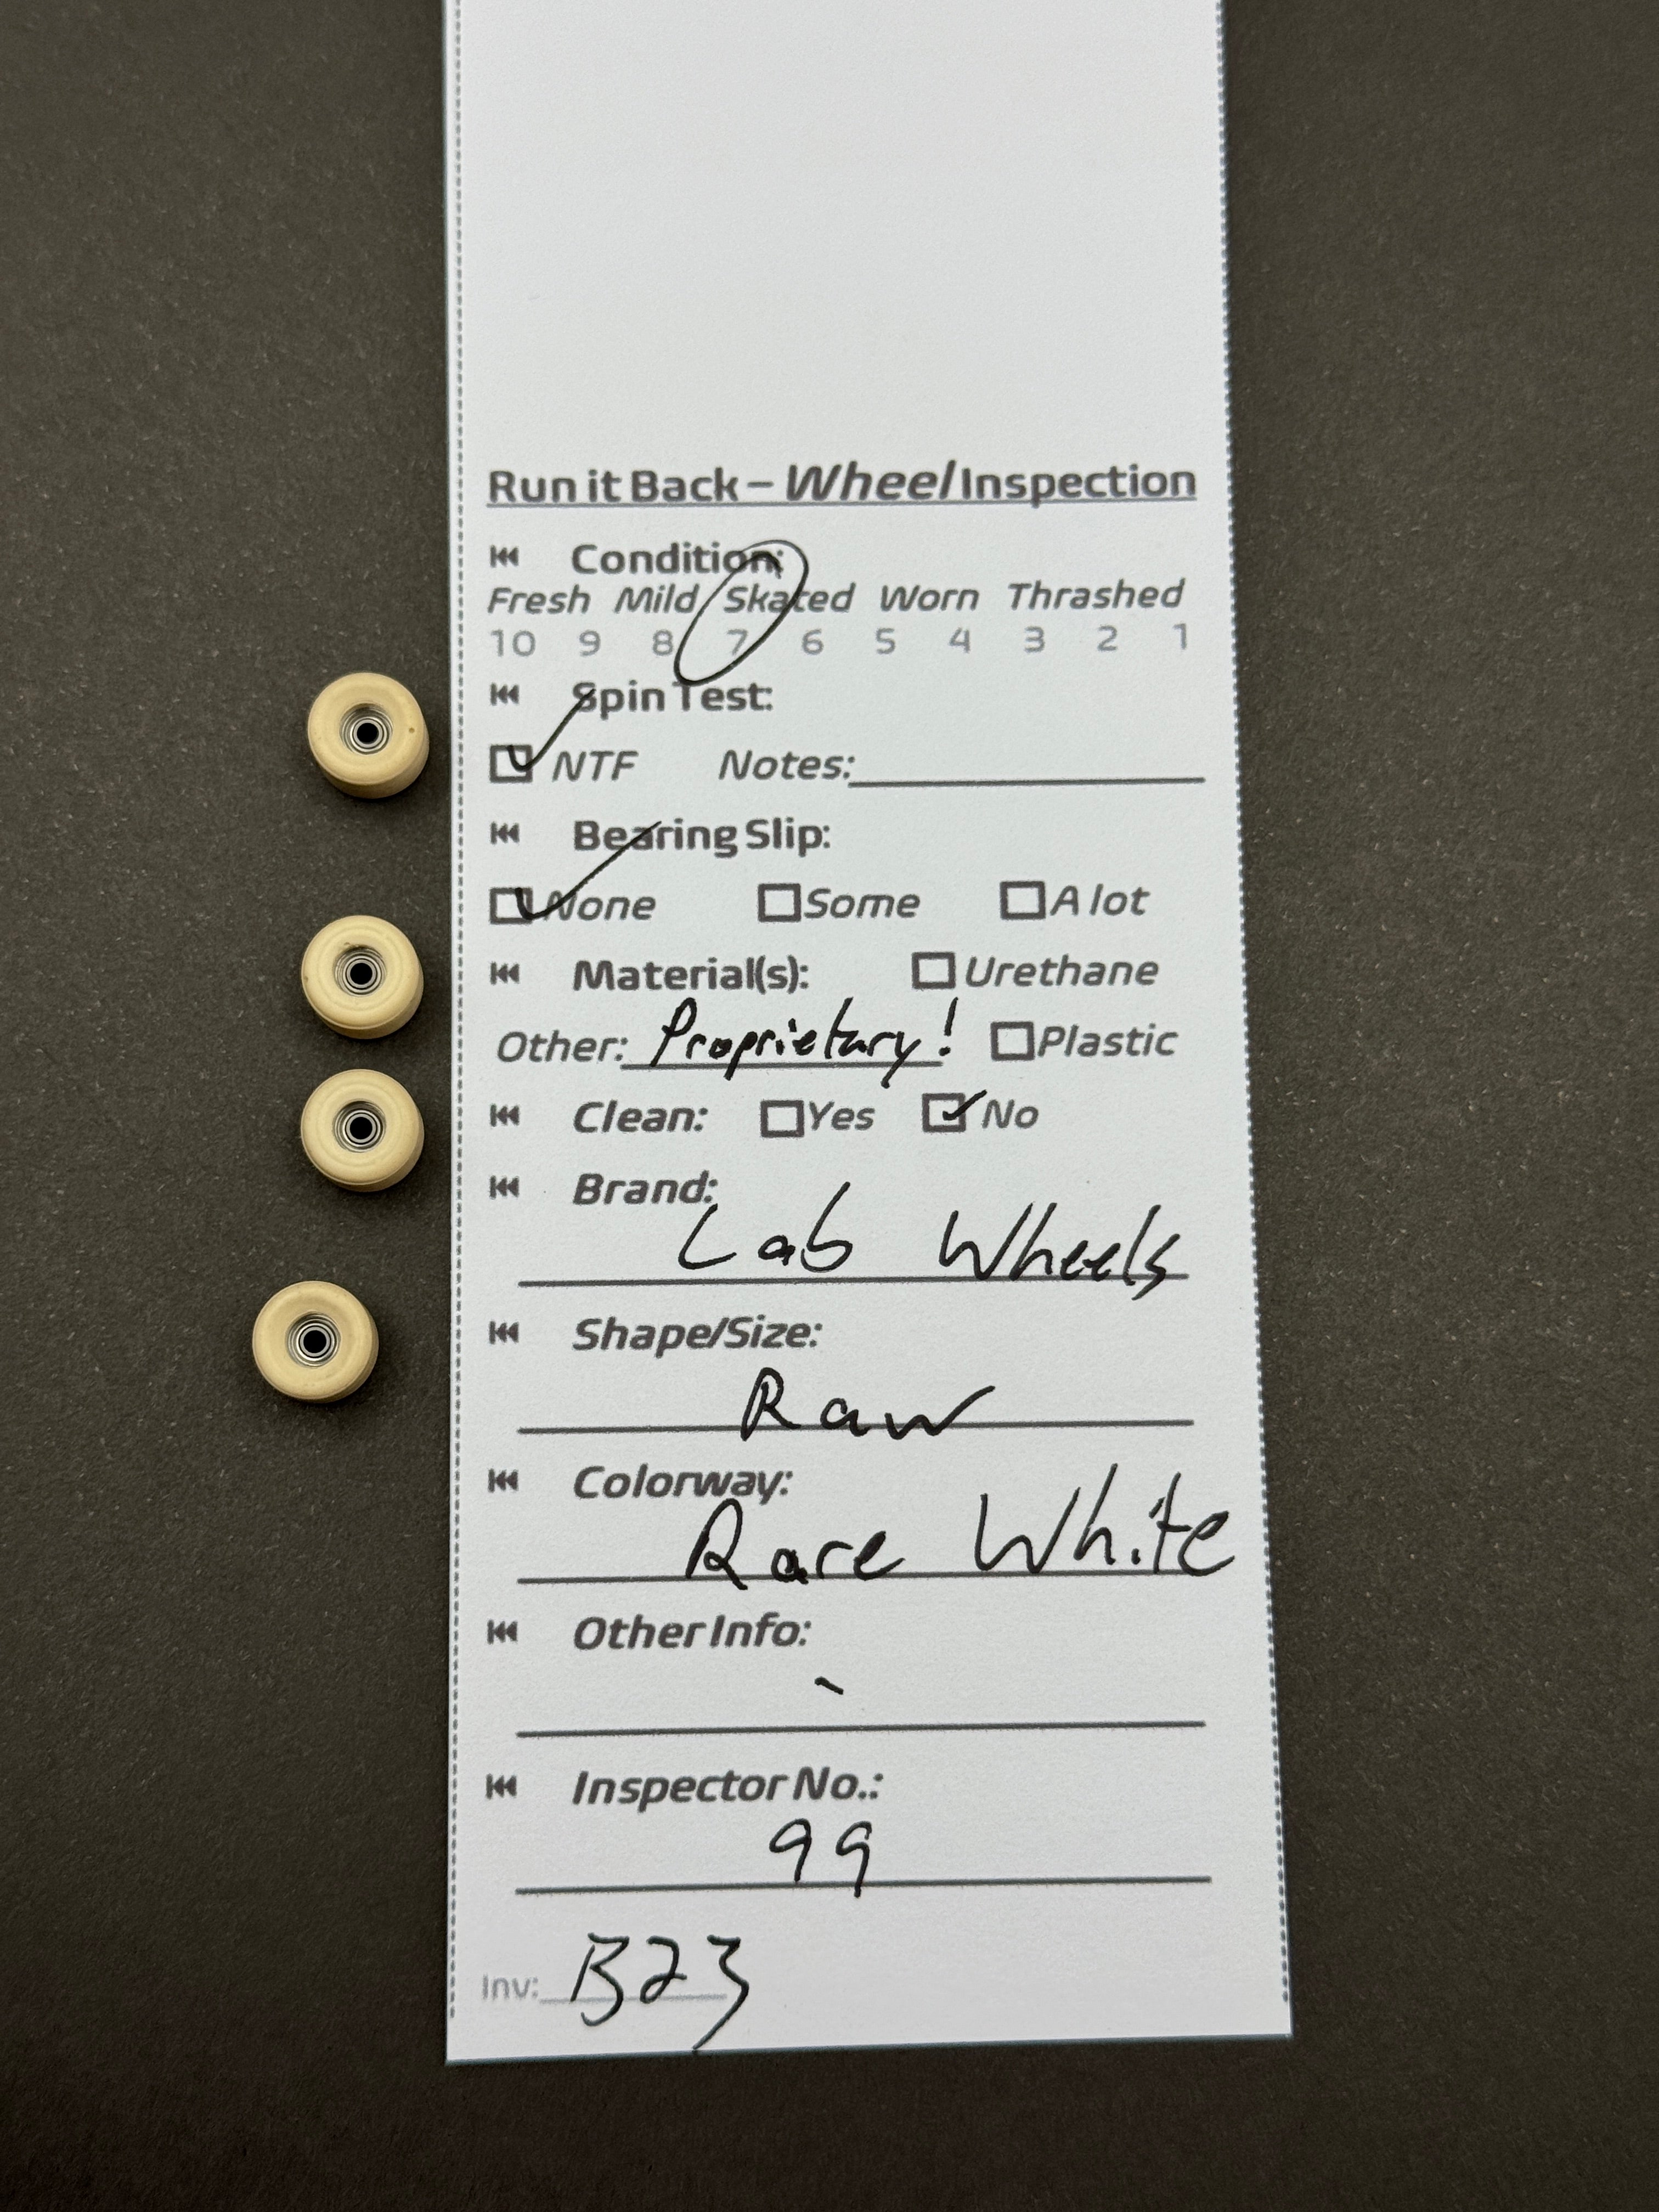 Run it Back – Wheel Inspection
Condition:
Fresh Mild Skated Worn Thrashed
10 9 8 7 6 5 4 3 2 1
Spin Test:
NTF Notes:
Bearing Slip:
None Some A lot
Material(s): Urethane
Other: Proprietary! Plastic
Clean: Yes No
Brand:
Lab Wheels
Shape/Size:
Raw
Colorway:
Rare White
Other Info:
Inspector No.:
99
Inv: B23